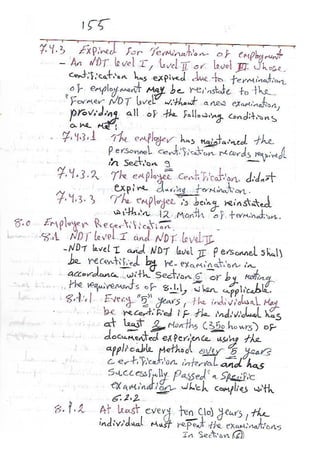 155
7.4.3 Expired for Termination of employment
- An NDT Level I, Level II or Level III whose
certification has expired due to termination
of employment May be reinstate to the
former NDT level without a new examination,
providing all of the following conditions
are met:
7.4.3.1 The employer has maintained the
personnel certification records required
in section 9
7.4.3.2 The employee certification didnot
expire during termination.
7.4.3.3 The employee is being reinstated
within 12 Month of termination.
8.0 Employer Recertification.
8.1 NDT Level I and NDT Level II
- NDT Level I and NDT Level II personnel shall
be recertified by re-examination in
accordance with Section 6 or by Meeting
the requirements of 8.1.1, when applicable.
8.1.1 Every "5" years, the individual May
be recertified if the individual has
at least 2 Months (350 hours) of
documented experience using the
applicable Method over 5 years
certification interval and has
Successfully passed a specific
examination which complies with
6.2.2
8.1.2 At least every ten (10) years, the
individual Must repeat the examinations
In Section (6)